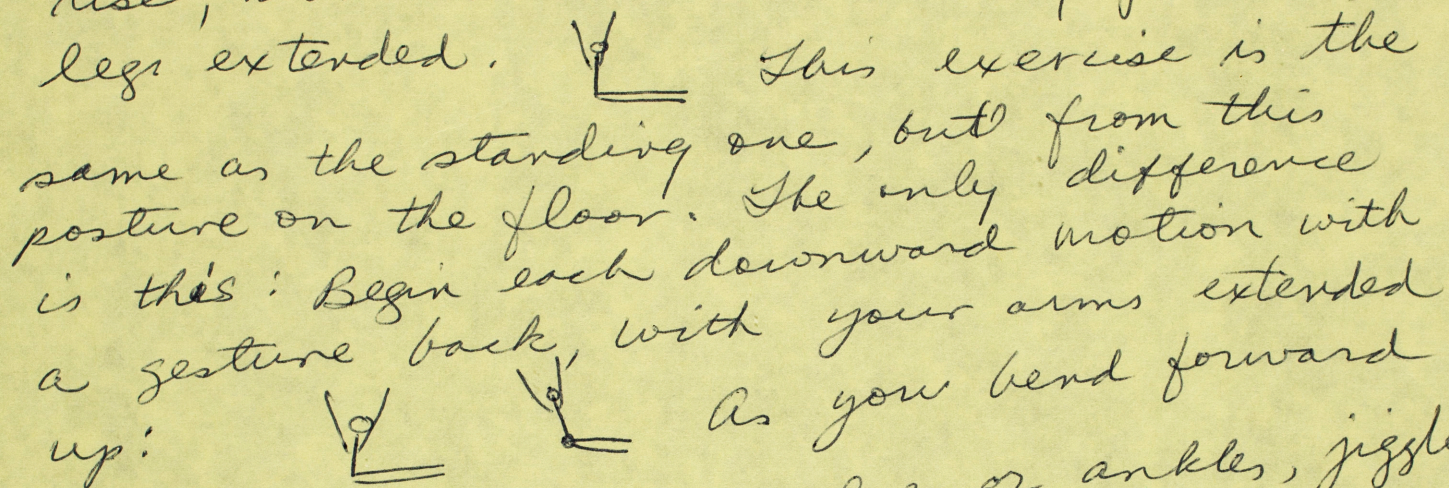 legs extended. This exercise is the
same as the standing one, but from this
posture on the floor. The only difference
is this: Begin each downward motion with
a gesture back, with your arms extended
up: As you bend forward
or ankles, jiggle